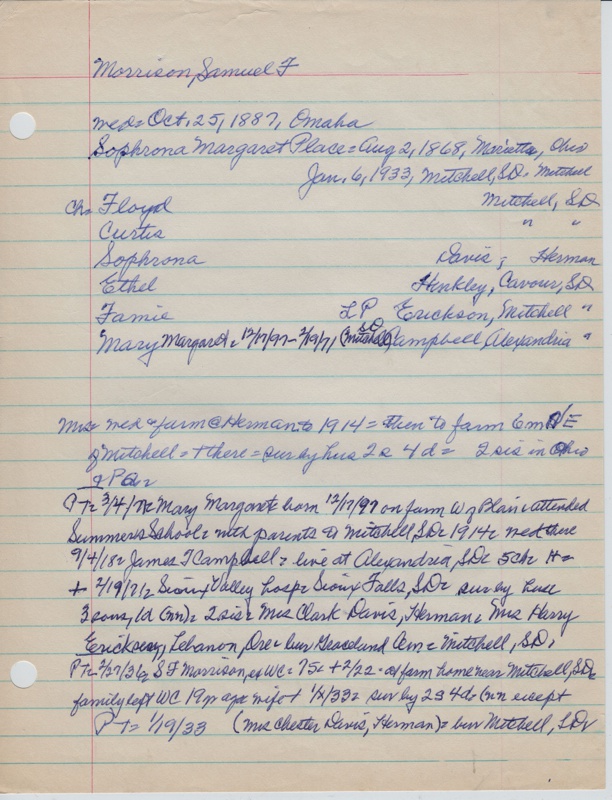 Morrison, Samuel F
med= Oct. 25, 1887, Omaha
Sophrona Margaret Place = Aug 2, 1868, Marietta, Ohio
Jan. 6, 1933, Mitchell, S.D. Mitchell
Ch= Floyd Mitchell, S.D.
Curtis " "
Sophrona Davis, Herman
Ethel Hinkley, Cavour, S.D.
Famie L P Erickson, Mitchell "
Mary Margaret = 12/17/97 - 2/19/71 (Mitchell SD) Campbell, Alexandria "
Mrs= med = farm @ Herman to 1914 = then to farm 6m N/E
of Mitchell = + there = sur by hus 2s 4d = 2 sis in Ohio
& Pa=
PT= 3/4/71= Mary Margaret= born 12/17/97 on farm W of Blair= attended
Summers School= with parents to Mitchell, SD= 1914= med there
9/4/18= James T Campbell= live at Alexandria, SD= 5ch= H=
+ 2/19/71= Sioux Valley hosp= Sioux Falls, SD= sur by hus
3 sons, 1d (nn)= 2 sis= Mrs Clark Davis, Herman, Mrs Harry
Erickson, Lebanon, Ore= bur Graceland Cem= Mitchell, SD.
PT= 2/27/36= S F Morrison, ex WC= 75= + 2/22= at farm home near Mitchell, SD=
family left WC 19 yr ago= wife + 1/6/33= sur by 2s 4d= (nn except
PT= 1/19/33 (Mrs Chester Davis, Herman)= bur Mitchell, SD=